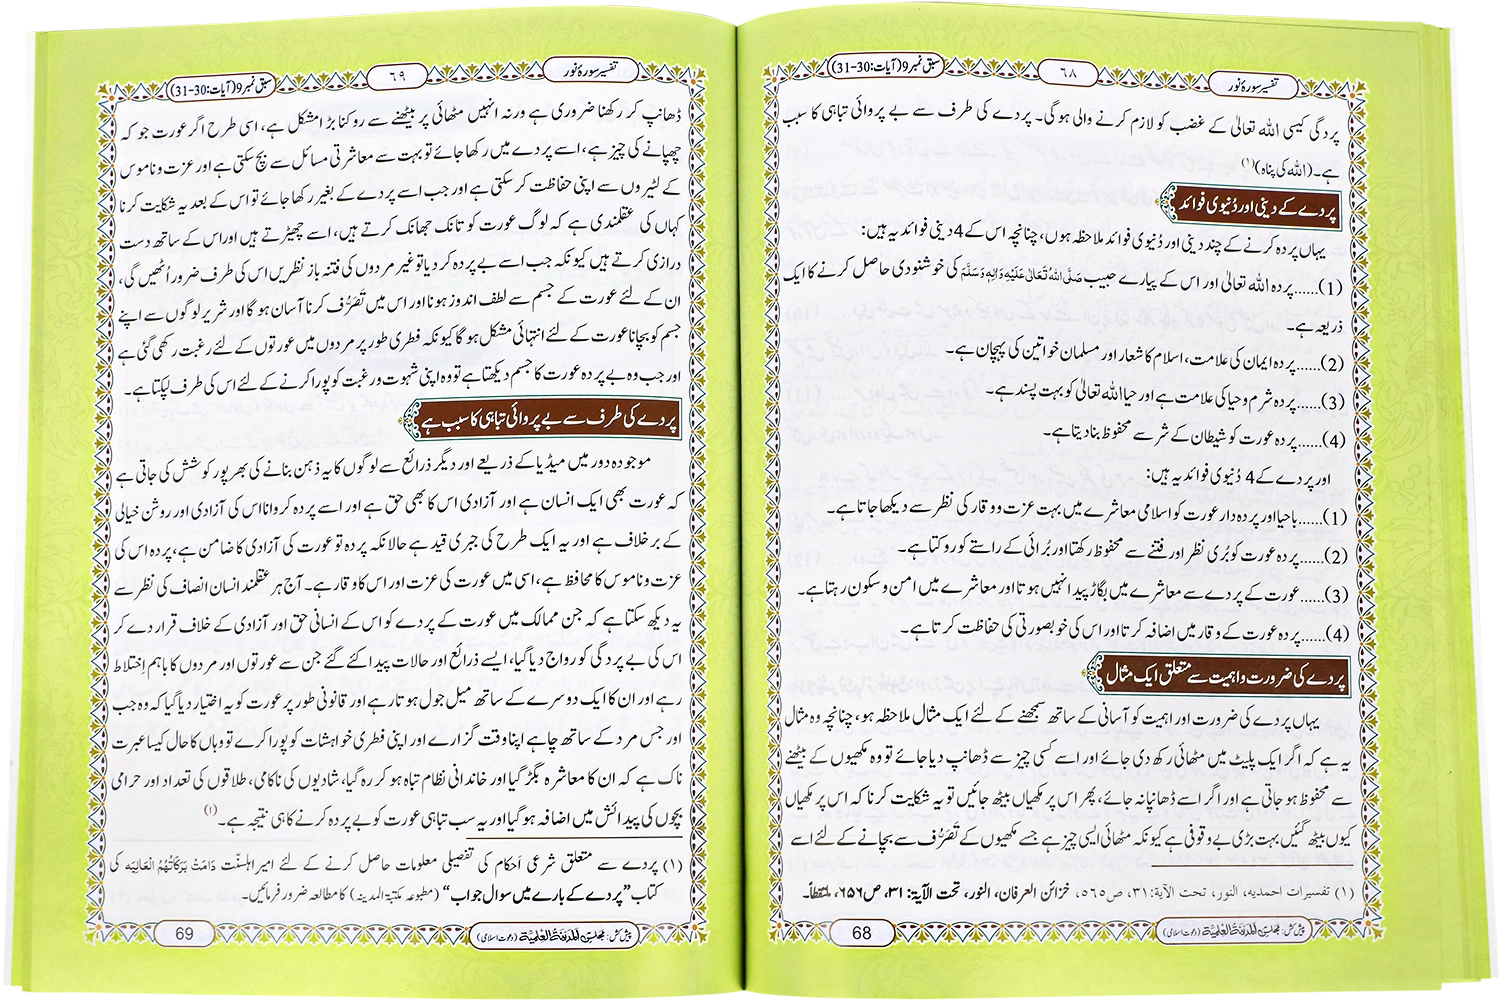 تفسیر سورۂ نور
٦٨
سبق نمبر 9 (آیات: 30-31)
پردگی کیسی اللہ تعالیٰ کے غضب کو لازم کرنے والی ہوگی۔ پردے کی طرف سے بے پروائی تباہی کا سبب
ہے۔ (اللہ کی پناہ) (١)
پردے کے دینی اور دُنیوی فوائد
یہاں پردہ کرنے کے چند دینی اور دُنیوی فوائد ملاحظہ ہوں، چنانچہ اس کے 4 دینی فوائد یہ ہیں:
(1)……پردہ اللہ تعالیٰ اور اس کے پیارے حبیب صَلَّی اللہُ تَعَالٰی عَلَیْہِ وَاٰلِہٖ وَسَلَّمَ کی خوشنودی حاصل کرنے کا ایک
ذریعہ ہے۔
(2)……پردہ ایمان کی علامت، اسلام کا شعار اور مسلمان خواتین کی پہچان ہے۔
(3)……پردہ شرم و حیا کی علامت ہے اور حیا اللہ تعالیٰ کو بہت پسند ہے۔
(4)……پردہ عورت کو شیطان کے شر سے محفوظ بنا دیتا ہے۔
اور پردے کے 4 دُنیوی فوائد یہ ہیں:
(1)……باحیا اور پردہ دار عورت کو اسلامی معاشرے میں بہت عزت و وقار کی نظر سے دیکھا جاتا ہے۔
(2)……پردہ عورت کو بُری نظر اور فتنے سے محفوظ رکھتا اور بُرائی کے راستے کو روکتا ہے۔
(3)……عورت کے پردے سے معاشرے میں بگاڑ پیدا نہیں ہوتا اور معاشرے میں امن و سکون رہتا ہے۔
(4)……پردہ عورت کے وقار میں اضافہ کرتا اور اس کی خوبصورتی کی حفاظت کرتا ہے۔
پردے کی ضرورت و اہمیت سے متعلق ایک مثال
یہاں پردے کی ضرورت اور اہمیت کو آسانی کے ساتھ سمجھنے کے لئے ایک مثال ملاحظہ ہو، چنانچہ وہ مثال
یہ ہے کہ اگر ایک پلیٹ میں مٹھائی رکھ دی جائے اور اسے کسی چیز سے ڈھانپ دیا جائے تو وہ مکھیوں کے بیٹھنے
سے محفوظ ہو جاتی ہے اور اگر اسے ڈھانپا نہ جائے، پھر اس پر مکھیاں بیٹھ جائیں تو یہ شکایت کرنا کہ اس پر مکھیاں
کیوں بیٹھ گئیں بہت بڑی بے وقوفی ہے کیونکہ مٹھائی ایسی چیز ہے جسے مکھیوں کے تَصَرُّف سے بچانے کے لئے اسے
(١) تفسیرات احمدیہ، النور، تحت الآیة: ٣١، ص٥٦٥، خزائن العرفان، النور، تحت الآیة: ٣١، ص٦٥٦، ملتقطاً۔
پیش کش: مجلس المدینۃ العلمیۃ (دعوت اسلامی)
68
تفسیر سورۂ نور
٦٩
سبق نمبر 9 (آیات: 30-31)
ڈھانپ کر رکھنا ضروری ہے ورنہ انہیں مٹھائی پر بیٹھنے سے روکنا بڑا مشکل ہے، اسی طرح اگر عورت جو کہ
چھپانے کی چیز ہے، اسے پردے میں رکھا جائے تو بہت سے معاشرتی مسائل سے بچ سکتی ہے اور عزت و ناموس
کے لٹیروں سے اپنی حفاظت کر سکتی ہے اور جب اسے پردے کے بغیر رکھا جائے تو اس کے بعد یہ شکایت کرنا
کہاں کی عقلمندی ہے کہ لوگ عورت کو تانک جھانک کرتے ہیں، اسے چھیڑتے ہیں اور اس کے ساتھ دست
درازی کرتے ہیں کیونکہ جب اسے بے پردہ کر دیا تو غیر مردوں کی فتنہ باز نظریں اس کی طرف ضرور اُٹھیں گی،
ان کے لئے عورت کے جسم سے لطف اندوز ہونا اور اس میں تَصَرُّف کرنا آسان ہوگا اور شریر لوگوں سے اپنے
جسم کو بچانا عورت کے لئے انتہائی مشکل ہوگا کیونکہ فطری طور پر مردوں میں عورتوں کے لئے رغبت رکھی گئی ہے
اور جب وہ بے پردہ عورت کا جسم دیکھتا ہے تو وہ اپنی شہوت و رغبت کو پورا کرنے کے لئے اس کی طرف لپکتا ہے۔
پردے کی طرف سے بے پروائی تباہی کا سبب ہے
موجودہ دور میں میڈیا کے ذریعے اور دیگر ذرائع سے لوگوں کا یہ ذہن بنانے کی بھرپور کوشش کی جاتی ہے
کہ عورت بھی ایک انسان ہے اور آزادی اس کا بھی حق ہے اور اسے پردہ کروانا اس کی آزادی اور روشن خیالی
کے برخلاف ہے اور یہ ایک طرح کی جبری قید ہے حالانکہ پردہ تو عورت کی آزادی کا ضامن ہے، پردہ اس کی
عزت و ناموس کا محافظ ہے، اسی میں عورت کی عزت اور اس کا وقار ہے۔ آج ہر عقلمند انسان انصاف کی نظر سے
یہ دیکھ سکتا ہے کہ جن ممالک میں عورت کے پردے کو اس کے انسانی حق اور آزادی کے خلاف قرار دے کر
اس کی بے پردگی کو رواج دیا گیا، ایسے ذرائع اور حالات پیدا کئے گئے جن سے عورتوں اور مردوں کا باہم اِختلاط
رہے اور ان کا ایک دوسرے کے ساتھ میل جول ہوتا رہے اور قانونی طور پر عورت کو یہ اختیار دیا گیا کہ وہ جب
اور جس مرد کے ساتھ چاہے اپنا وقت گزارے اور اپنی فطری خواہشات کو پورا کرے تو وہاں کا حال کیسا عبرت
ناک ہے کہ ان کا معاشرہ بگڑ گیا اور خاندانی نظام تباہ ہو کر رہ گیا، شادیوں کی ناکامی، طلاقوں کی تعداد اور حرامی
بچوں کی پیدائش میں اضافہ ہو گیا اور یہ سب تباہی عورت کو بے پردہ کرنے کا ہی نتیجہ ہے۔ (١)
(١) پردے سے متعلق شرعی اَحکام کی تفصیلی معلومات حاصل کرنے کے لئے امیر اہلسنّت دَامَتْ بَرَکَاتُہُمُ الْعَالِیَہ کی
کتاب ”پردے کے بارے میں سوال جواب“ (مطبوعہ مکتبۃ المدینہ) کا مطالعہ ضرور فرمائیں۔
پیش کش: مجلس المدینۃ العلمیۃ (دعوت اسلامی)
69